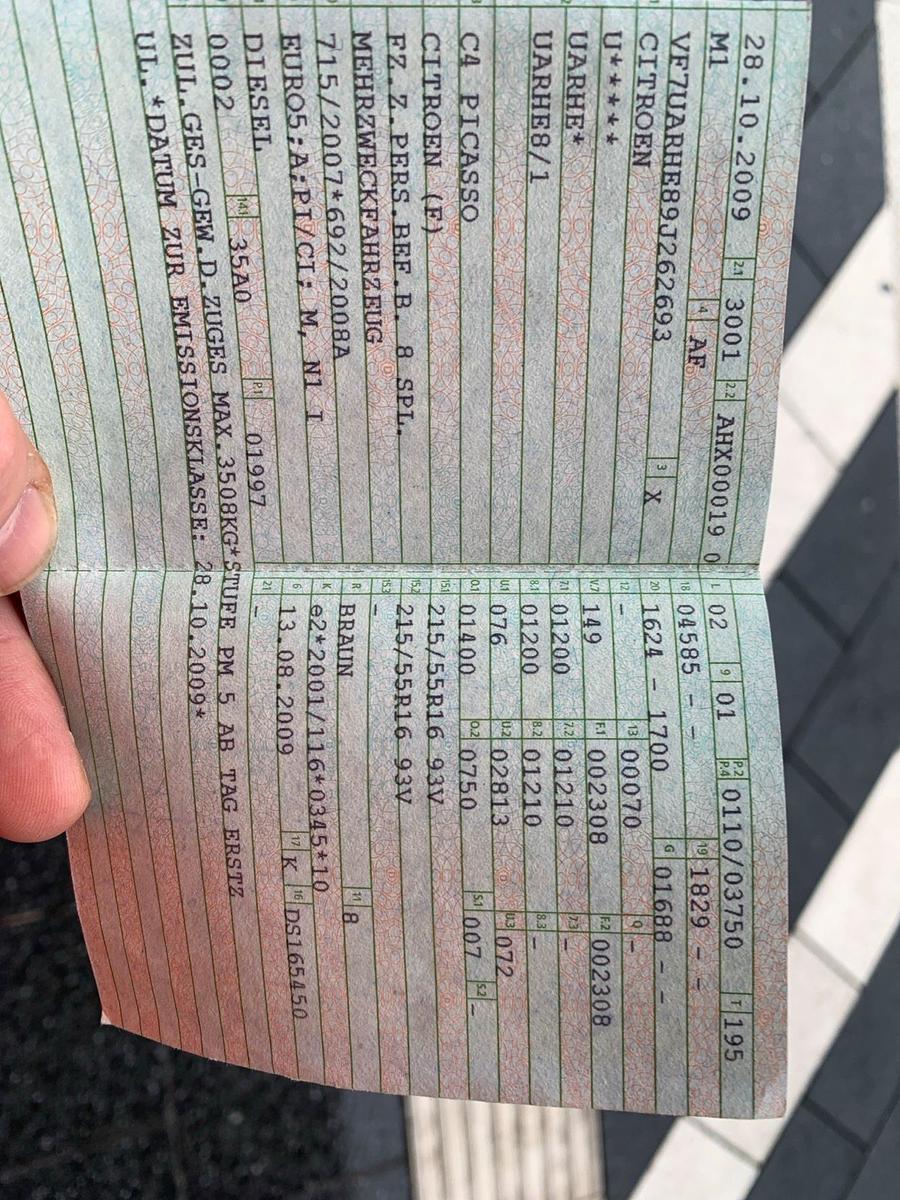 28.10.2009 2.1 3001 2.2 AHX00019 0
M1 4 AF
VF7UARHE89J262693 3 X
CITROEN
U*****
UARHE*
UARHE8/1
C4 PICASSO
CITROEN (F)
FZ.Z.PERS.BEF.B. 8 SPL.
MEHRZWECKFAHRZEUG
715/2007*692/2008A
EURO5;A;PI/CI; M, N1 I
DIESEL P.1 01997
0002 14.1 35A0
ZUL.GES-GEW.D.ZUGES MAX.3508KG*STUFE PM 5 AB TAG ERSTZ
UL.*DATUM ZUR EMISSIONSKLASSE: 28.10.2009*
L 02 9 01 P.2 P.4 0110/03750 T 195
18 04585 - - 19 1829 - -
20 1624 - 1700 G 01688 - -
12 - 13 00070 Q -
V.7 149 F.1 002308 F.2 002308
7.1 01200 7.2 01210 7.3 -
8.1 01200 8.2 01210 8.3 -
U.1 076 U.2 02813 U.3 072
O.1 01400 O.2 0750 S.1 007 S.2 -
15.1 215/55R16 93V
15.2 215/55R16 93V
15.3 -
R BRAUN 11 8
K e2*2001/116*0345*10
6 13.08.2009 17 K 16 DS165450
21 -